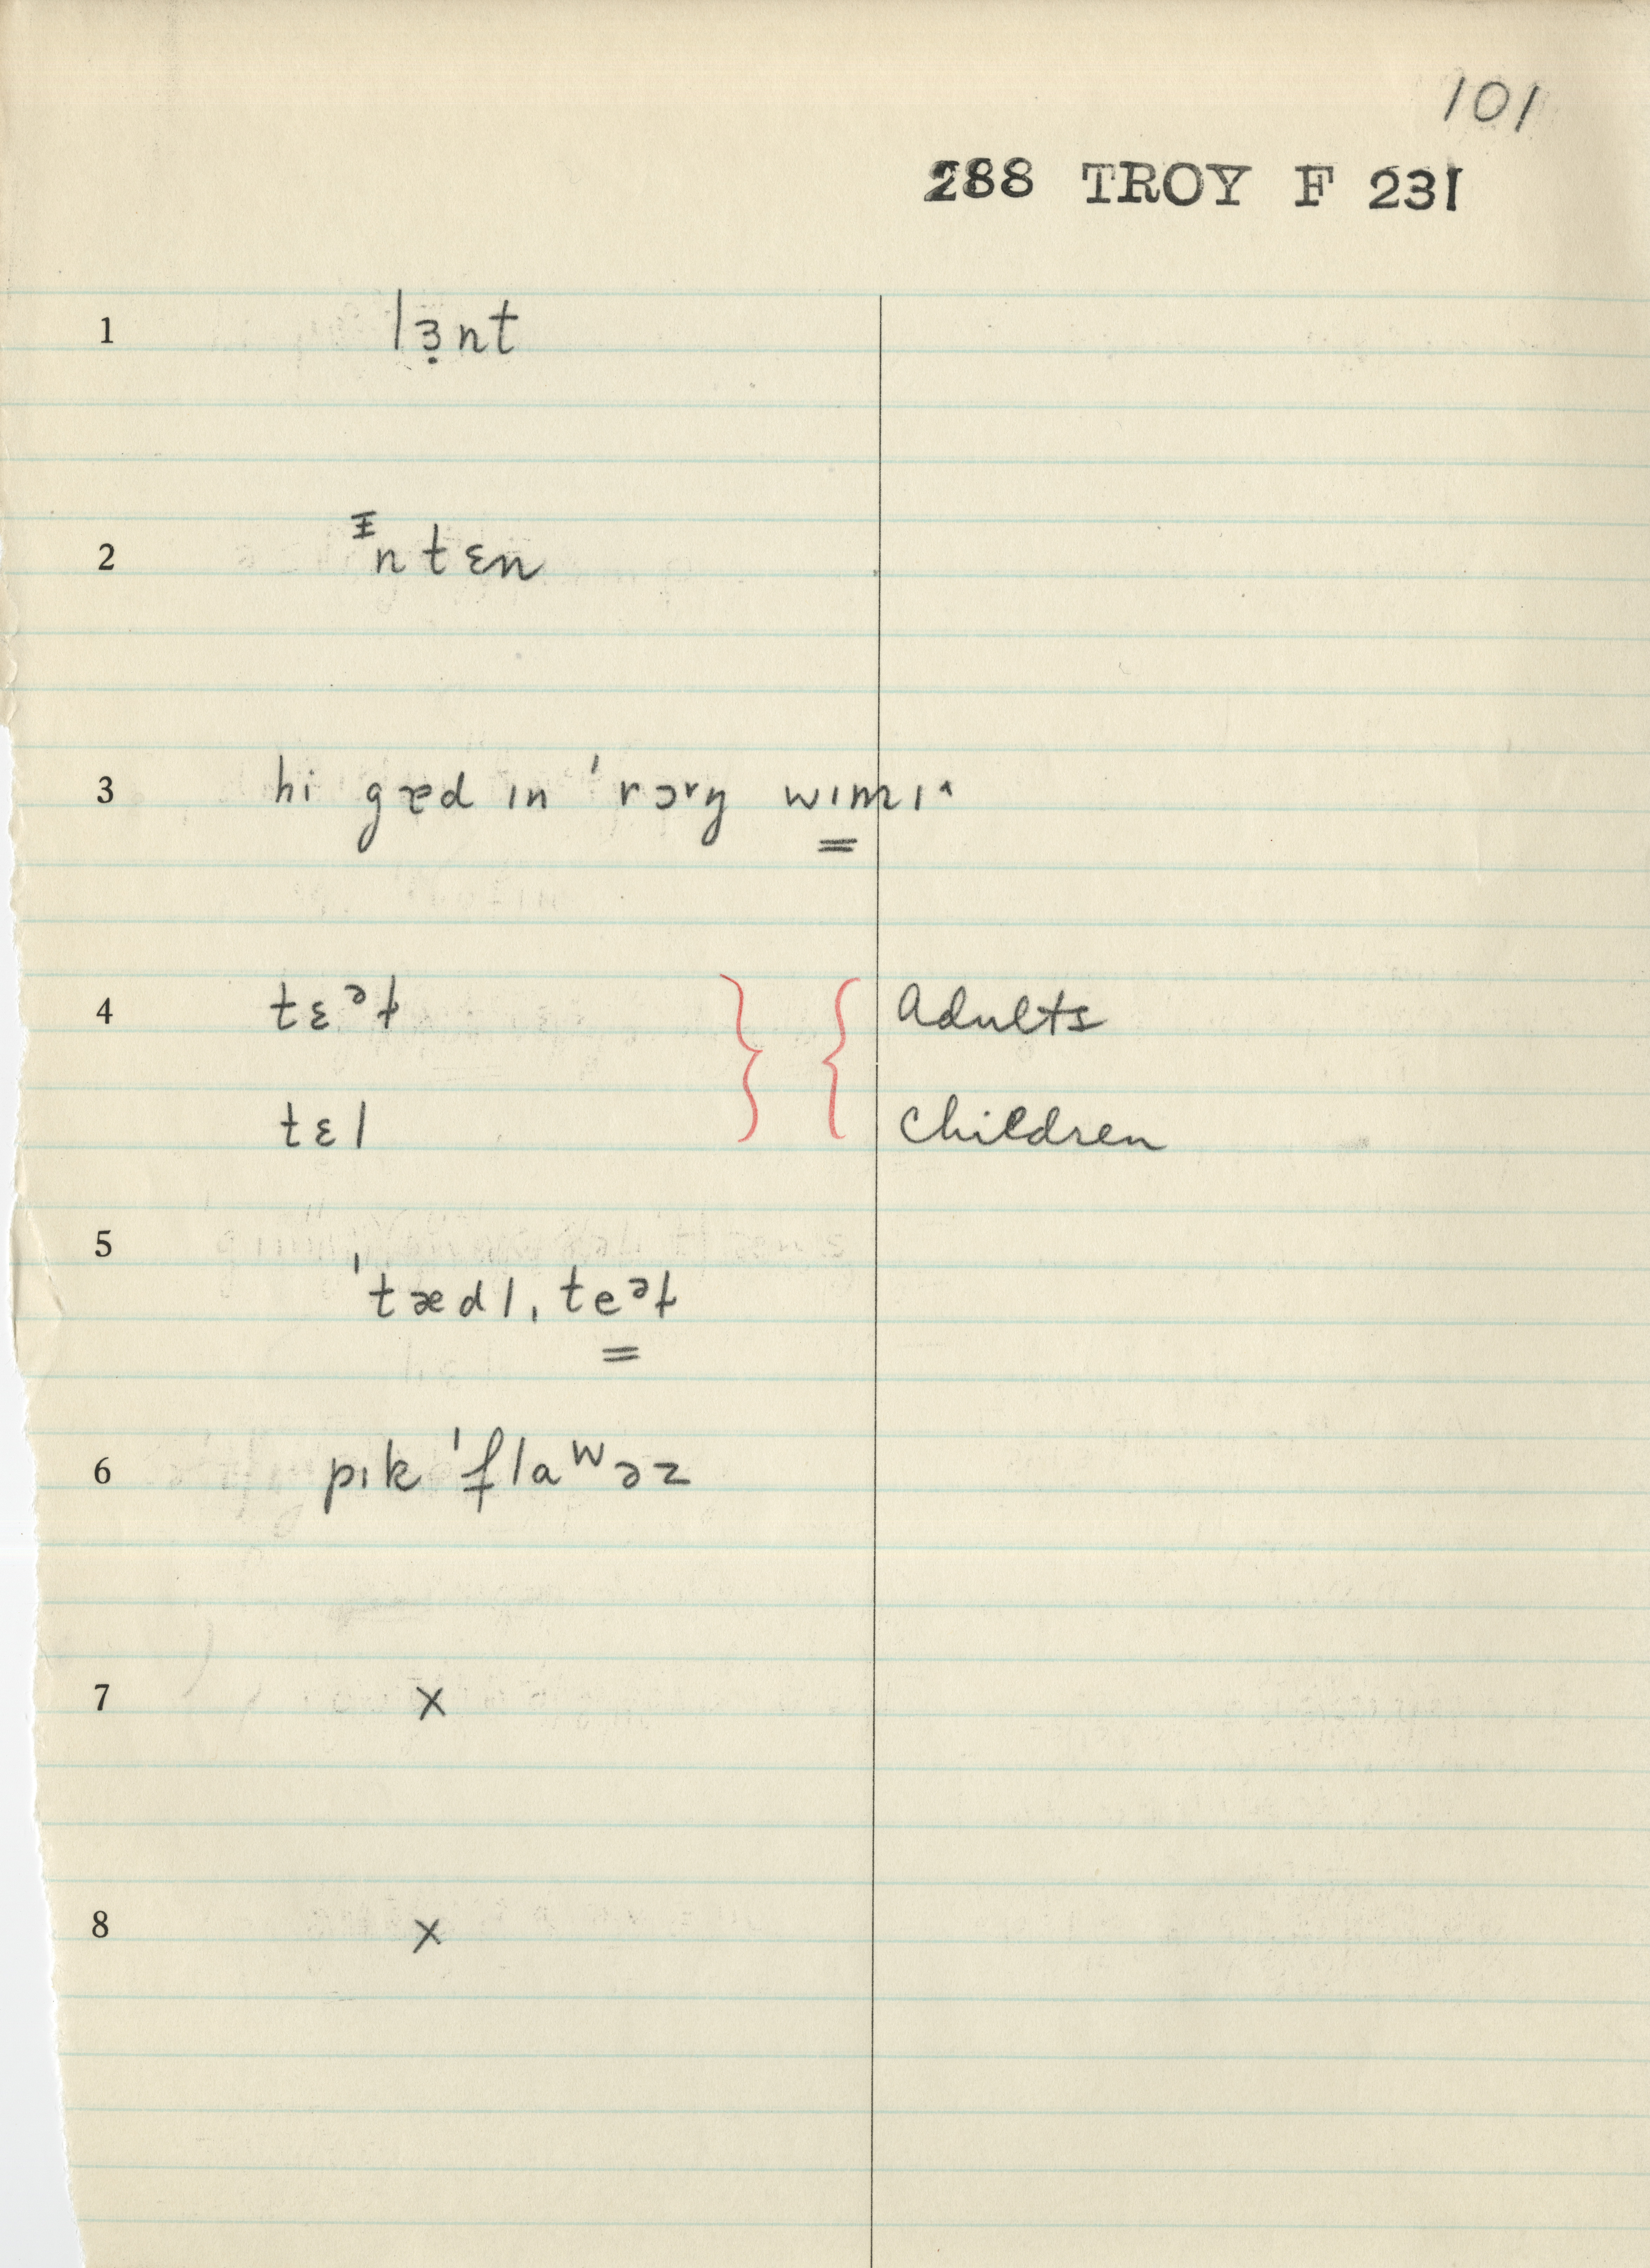 101
288 TROY F 231
1 lɜ̣nt
2 ᵻn tɛn
3 hi gæd ɪn ˈrɔrŋ wɪmɪ˄
4 tɛᵊɫ } { Adults
tɛl children
5 ˈtædl, teᵊɫ
6 pɪk ˈflaʷəz
7 x
8 x